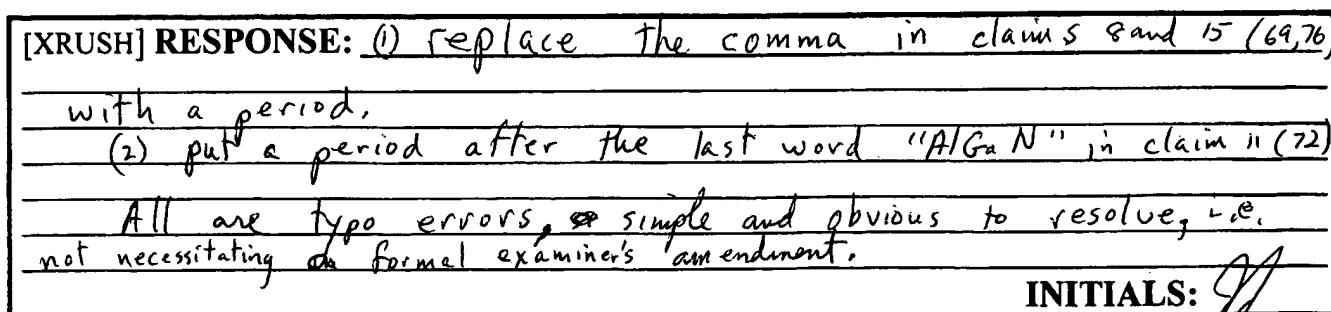 [XRUSH] RESPONSE: (1) replace the comma in claims 8 and 15 (69,76)
with a period.
(2) put a period after the last word "AlGaN" in claim 11 (72)
All are typo errors, simple and obvious to resolve, i.e.
not necessitating formal examiner's amendment.
INITIALS: